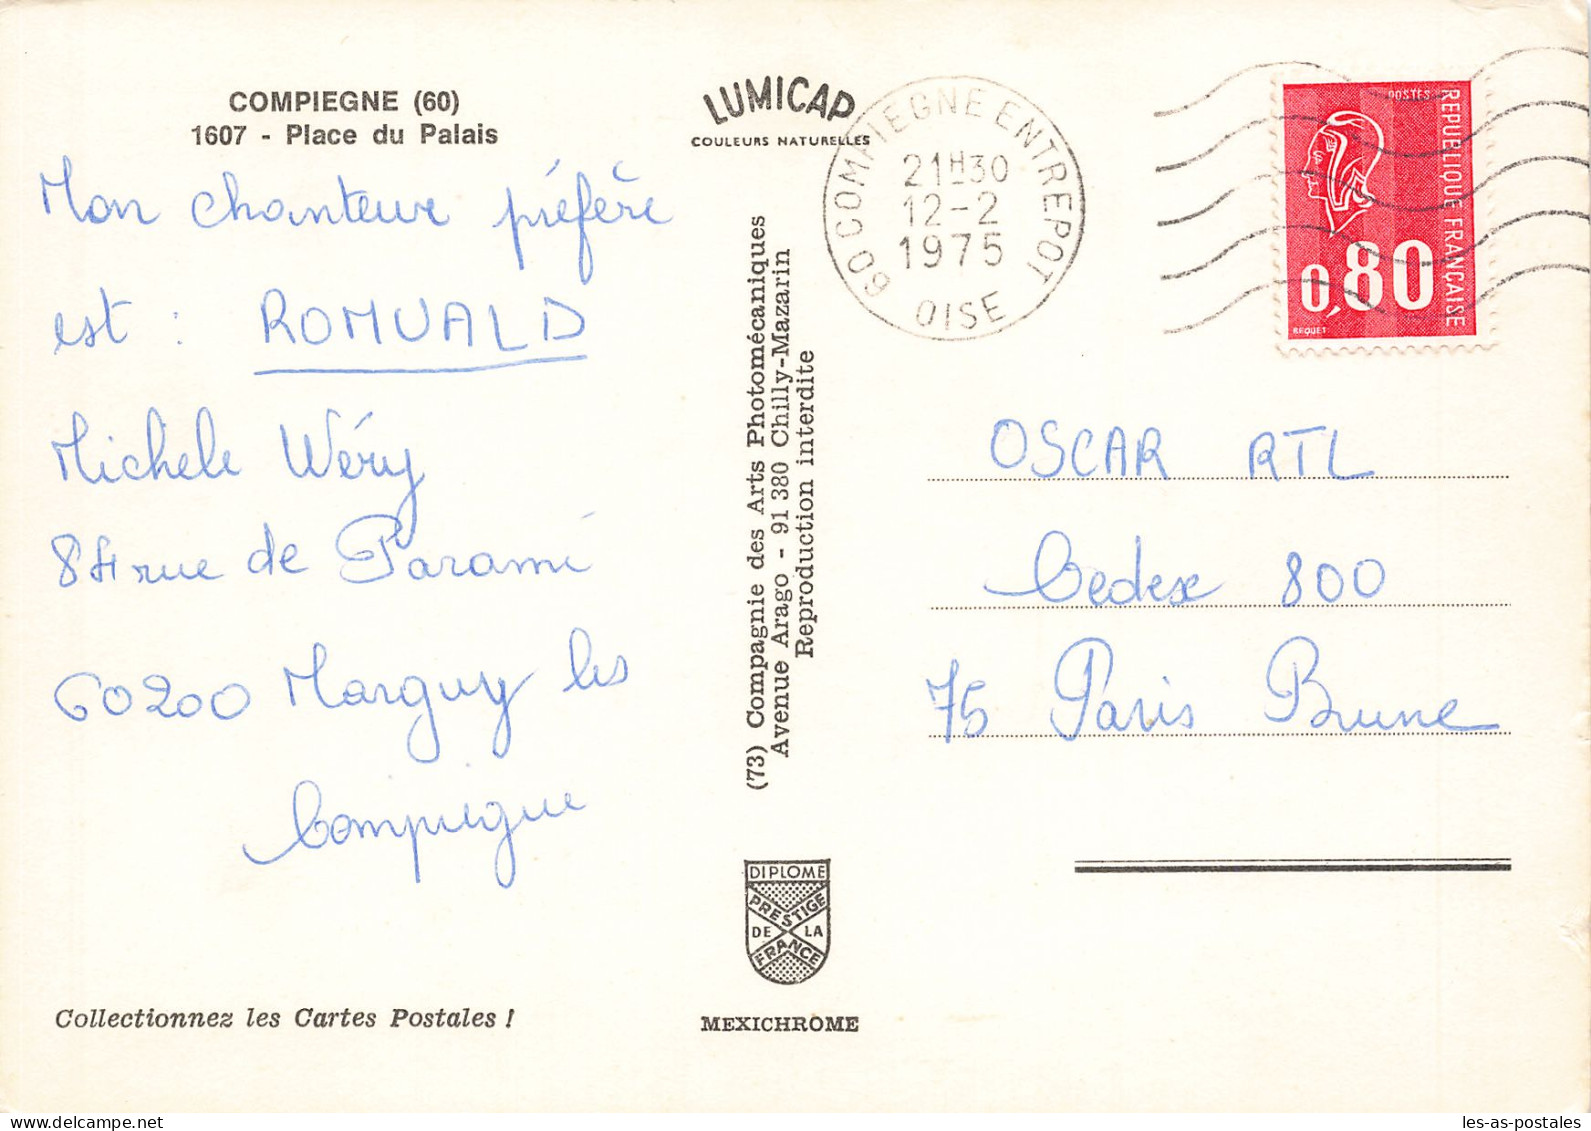 COMPIEGNE (60)
1607 - Place du Palais
Mon chanteur préféré
est : ROMUALD
Michele Wéry
84 rue de Paramé
60200 Marguy les
Compiegne
Collectionnez les Cartes Postales !
LUMICAP
COULEURS NATURELLES
(73) Compagnie des Arts Photomécaniques
Avenue Arago - 91 380 Chilly-Mazarin
Reproduction interdite
DIPLOME
PRESTIGE
DE LA
FRANCE
MEXICHROME
60 COMPIEGNE ENTREPOT
21H30
12-2
1975
OISE
POSTES
REPUBLIQUE FRANCAISE
0,80
BEQUET
OSCAR RTL
Cedex 800
75 Paris Brune
les-as-postales.com